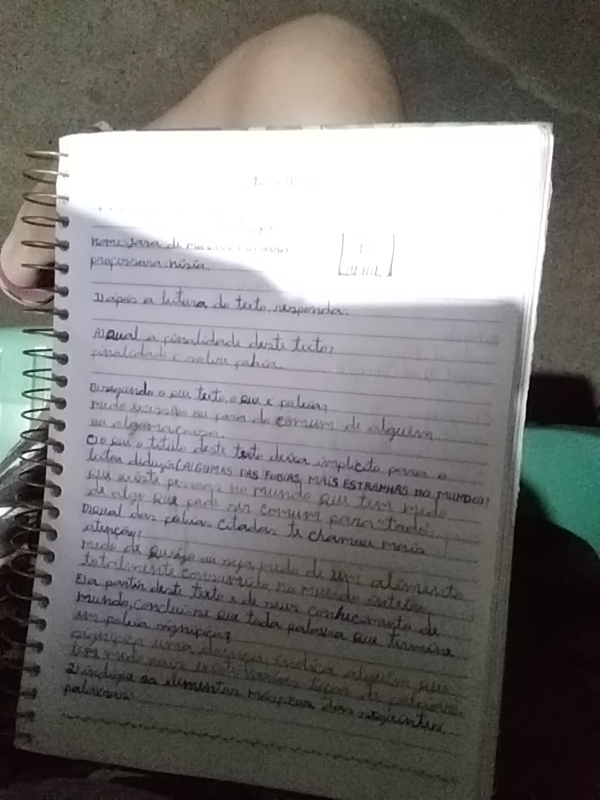 nome Sara de
professora
ABRIL
1) após a leitura do texto, responda:
A) Qual a finalidade deste texto?
finalidade e sobre fobia.
B) segundo o seu texto, o que é fobia?
medo ou fora do comum de alguém
ou alguma coisa.
C) o que o título deste texto deixa implícito para o
leitor (ALGUMAS DAS FOBIAS MAIS ESTRANHAS DO MUNDO)?
que existe pessoas no mundo que tem medo
de algo que pode ser comum para todos.
D) Qual das fobias citadas te chamou mais
atenção?
medo de queijo ou seja medo de um alimento
totalmente consumido no mundo inteiro.
E) a partir deste texto e de seus conhecimento de
mundo, conclui-se que toda palavra que termine
em fobia significa?
significa uma doença alguém que
tem medo existe vários tipos de
2) indique os elementos mórficos das seguintes
palavras: